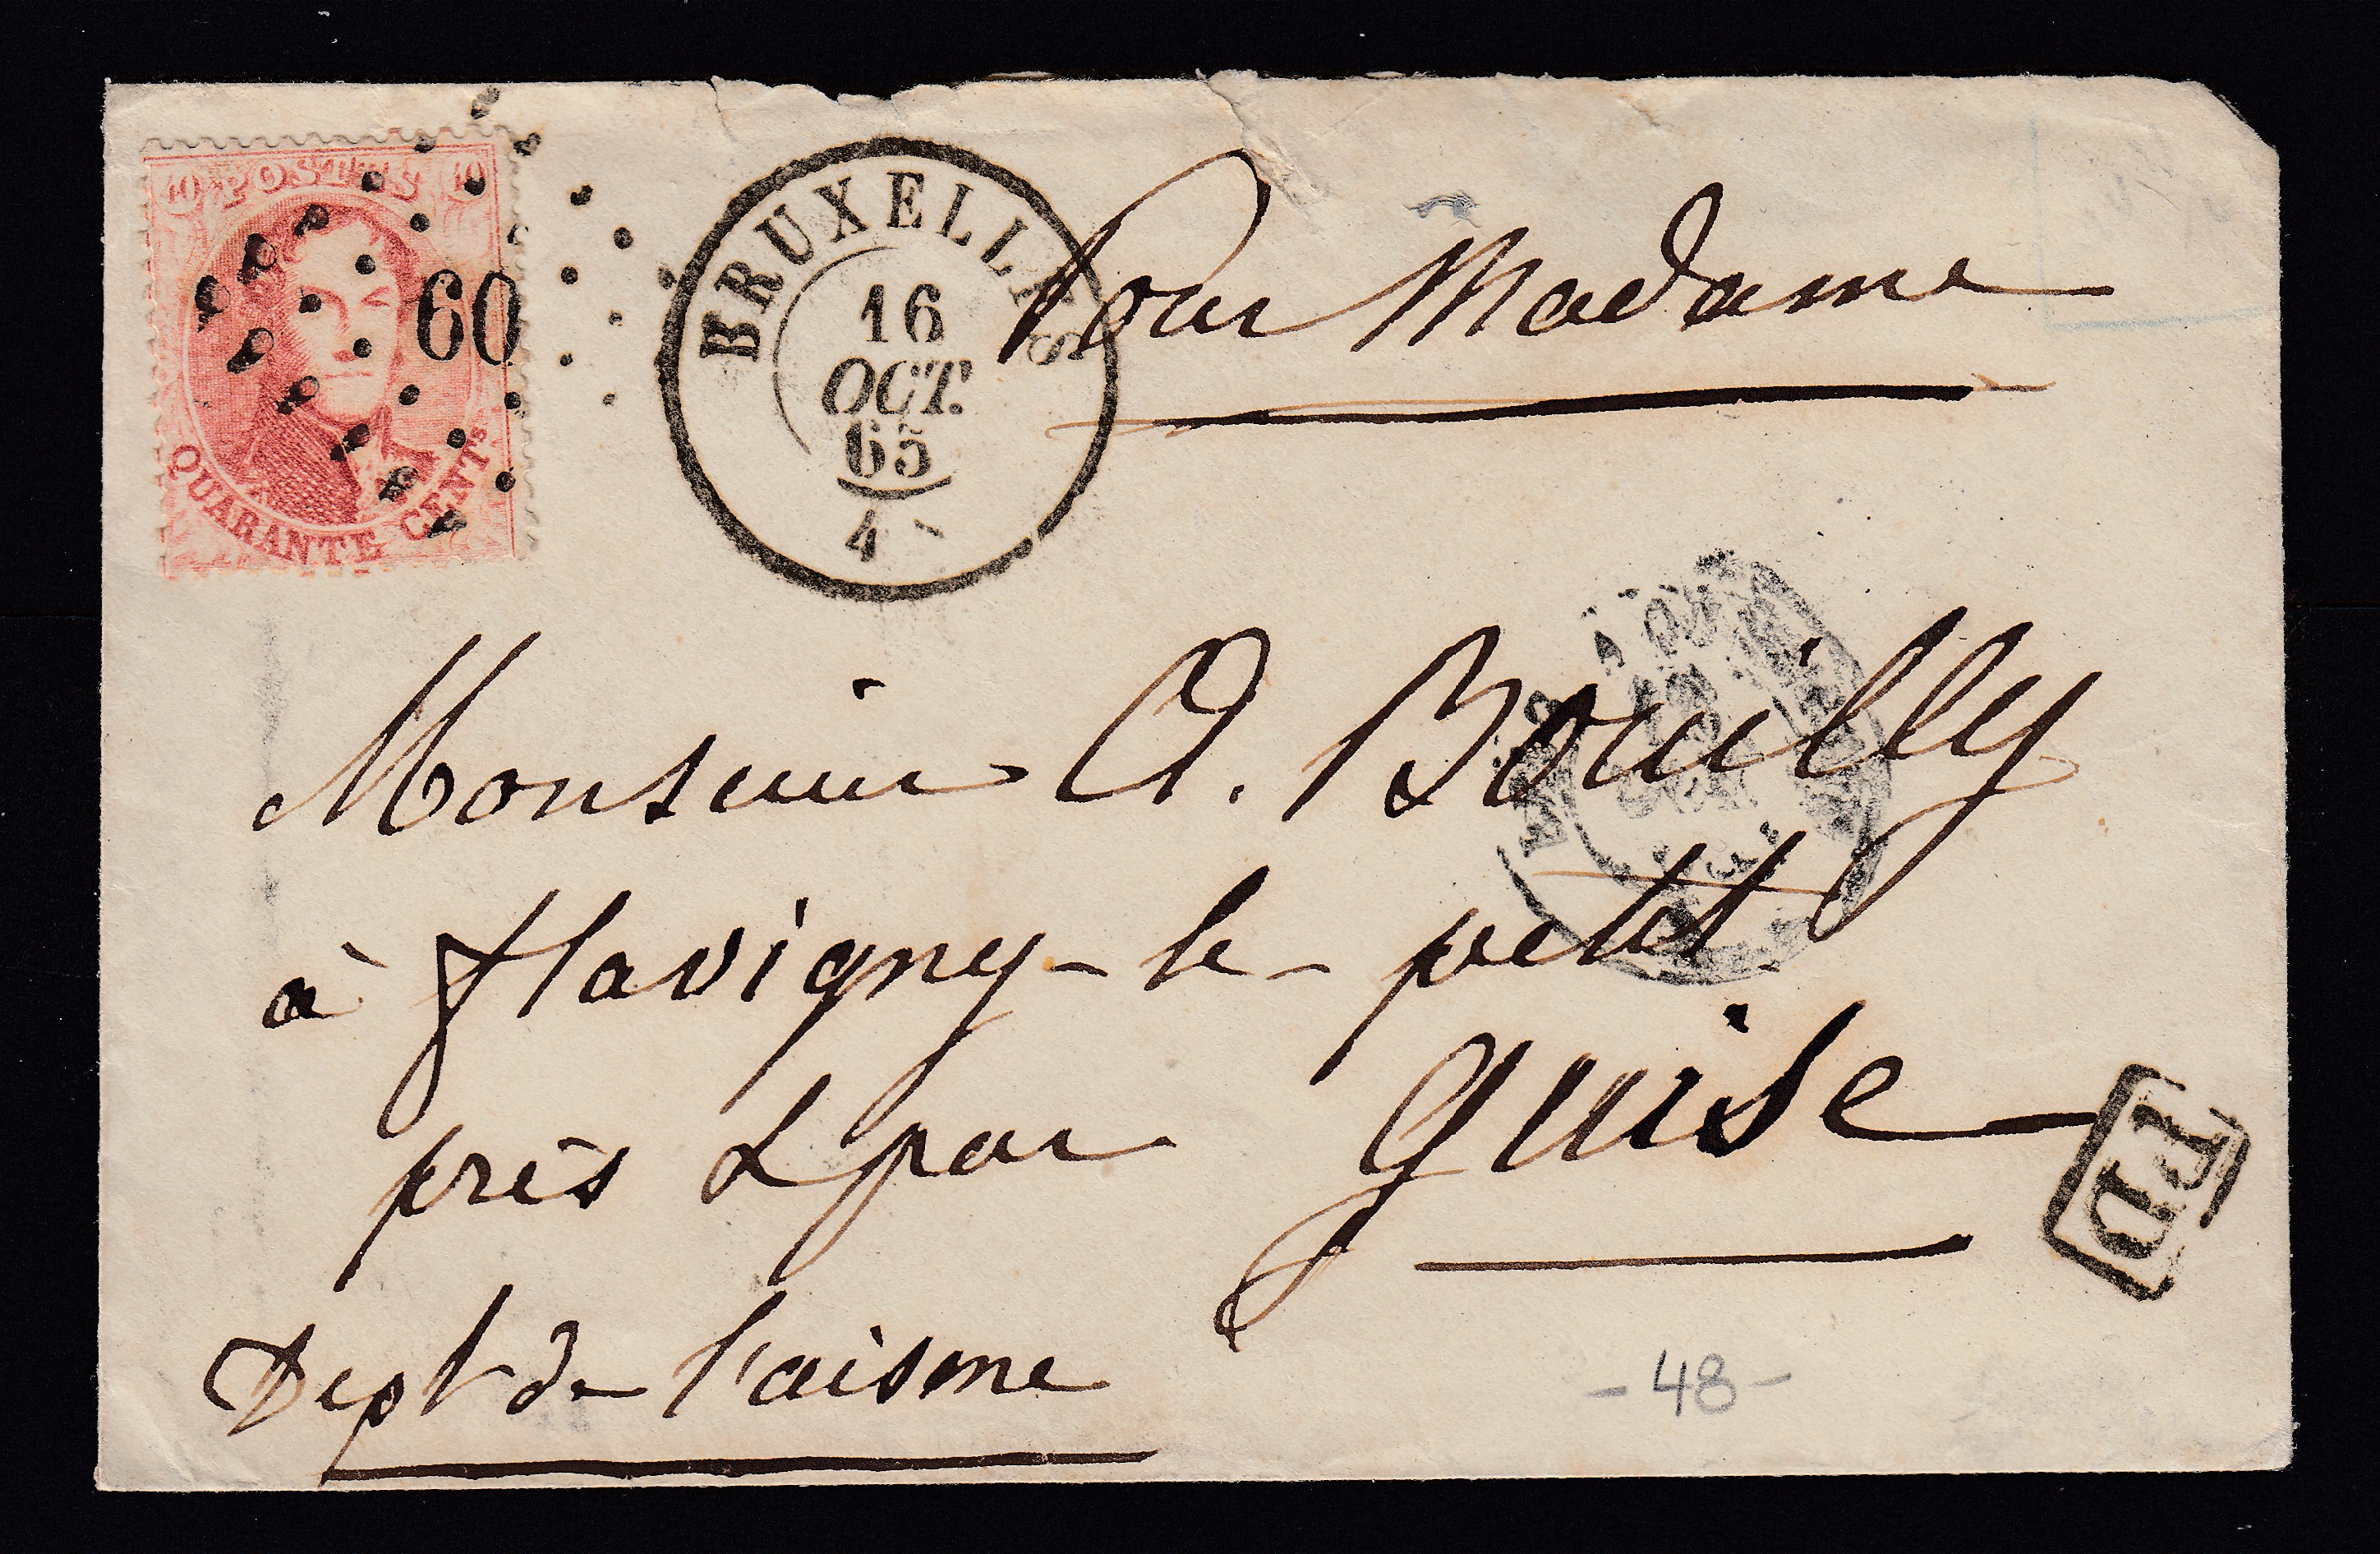 10 POSTES 10
60
QUARANTE CENTS
BRUXELLES
16
OCT.
65
4
Pour Madame
Monsieur A. Bouilly
à flavigny-le-petit
près & par guise
PD
Dept de l'aisne
-48-